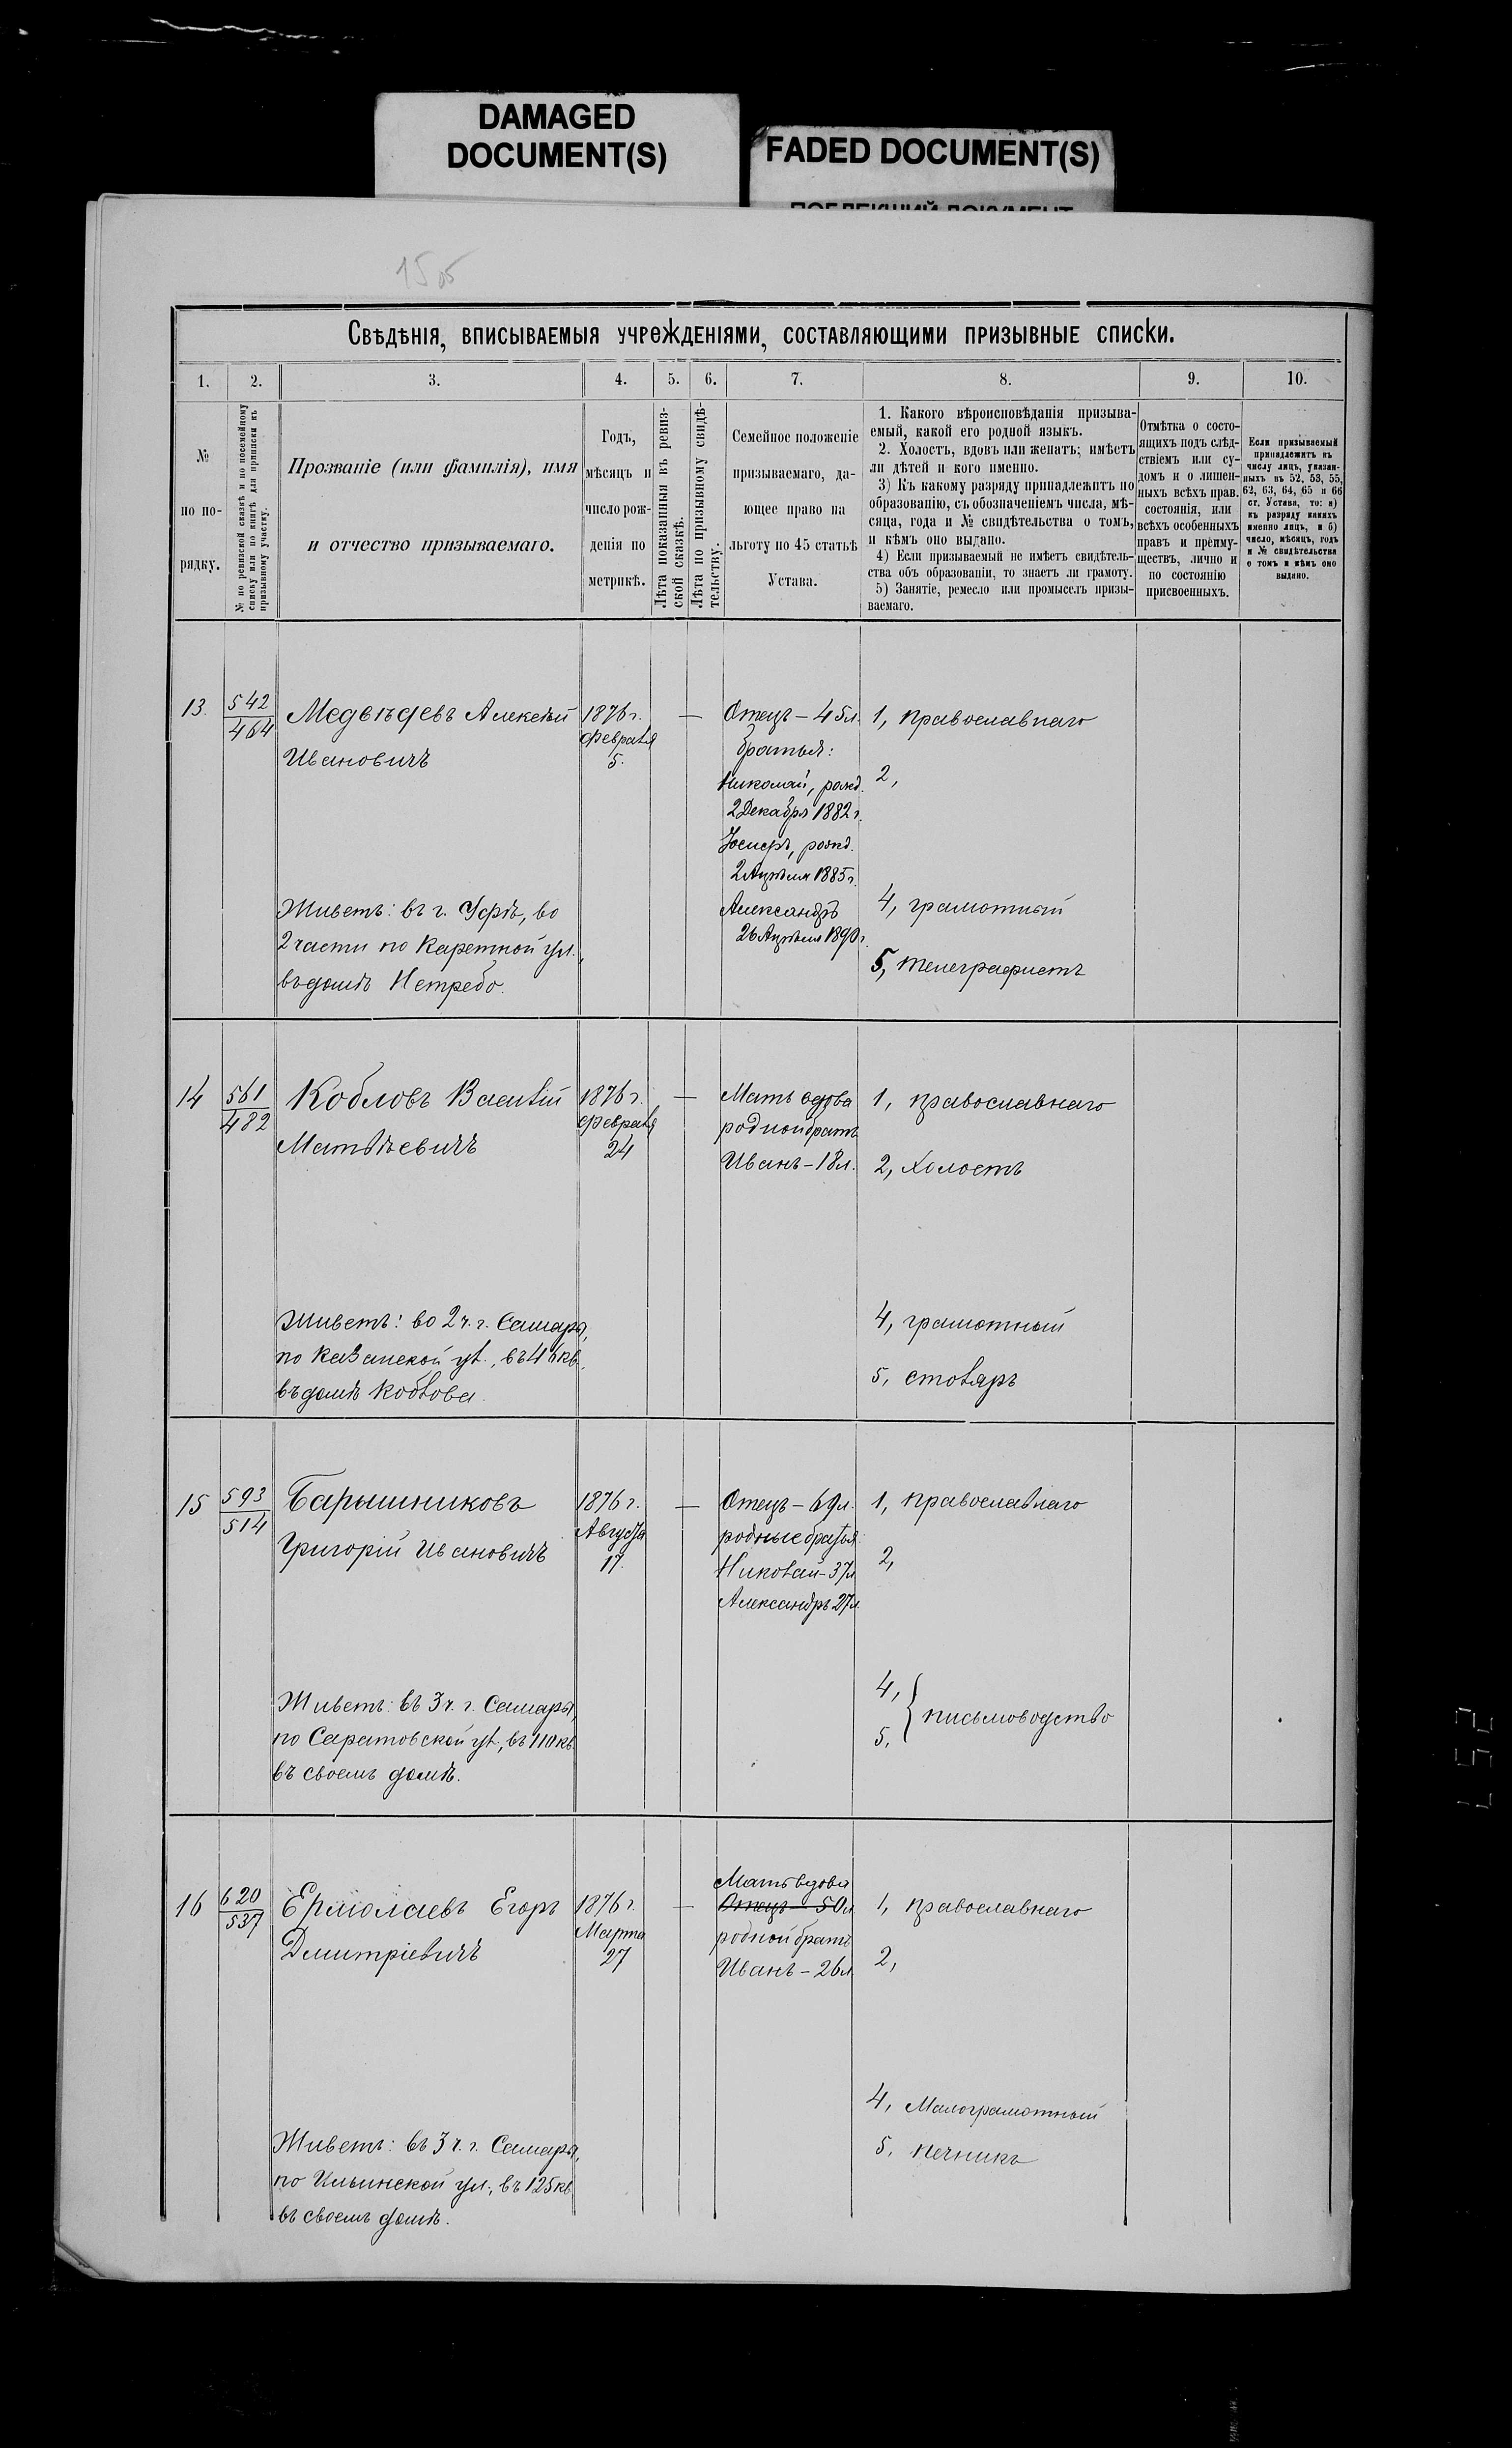 DAMAGED
DOCUMENT(S)
FADED DOCUMENT(S)
1505
Свѣдѣнія, вписываемыя учрежденіями, составляющими призывные списки.
1. 2. 3. 4. 5. 6. 7. 8. 9. 10.
№
по по-
рядку.
№ по ревизской сказкѣ и по посемейному
списку или по книгѣ для приписки къ
призывному участку.
Прозваніе (или фамилія), имя
и отчество призываемаго.
Годъ,
мѣсяцъ и
число рож-
денія по
метрикѣ.
Лѣта показанныя въ ревиз-
ской сказкѣ.
Лѣта по призывному свидѣ-
тельству.
Семейное положеніе
призываемаго, да-
ющее право на
льготу по 45 статьѣ
Устава.
1. Какого вѣроисповѣданія призыва-
емый, какой его родной языкъ.
2. Холостъ, вдовъ или женатъ; имѣетъ
ли дѣтей и кого именно.
3) Къ какому разряду принадлежитъ по
образованію, съ обозначеніемъ числа, мѣ-
сяца, года и № свидѣтельства о томъ,
и кѣмъ оно выдано.
4) Если призываемый не имѣетъ свидѣтель-
ства объ образованіи, то знаетъ ли грамоту.
5) Занятіе, ремесло или промыселъ призы-
ваемаго.
Отмѣтка о состо-
ящихъ подъ слѣд-
ствіемъ или су-
домъ и о лишен-
ныхъ всѣхъ прав.
состоянія, или
всѣхъ особенныхъ
правъ и преиму-
ществъ, лично и
по состоянію
присвоенныхъ.
Если призываемый
принадлежитъ къ
числу лицъ, указан-
ныхъ въ 52, 53, 55,
62, 63, 64, 65 и 66
ст. Устава, то: а)
къ разряду какихъ
именно лицъ, и б)
число, мѣсяцъ, годъ
и № свидѣтельства
о томъ и кѣмъ оно
выдано.
13. 542
464
Медвѣдевъ Алексѣй
Ивановичъ
Живетъ: въ г. Уфѣ, во
2 части по Каретной ул.,
въ домѣ Нетребо.
1876 г.
Февраля
5.
—
Отецъ – 45 л.
братья:
Николай, рожд.
2 Декабря 1882 г.
Іосифъ, рожд.
2 Апрѣля 1885 г.
Александръ
26 Апрѣля 1890 г.
1, православнаго
2,
4, грамотный
5, телеграфистъ
14 561
482
Кобловъ Василій
Матвѣевичъ
Живетъ: во 2 ч. г. Самары,
по Казанской ул., въ 46 кв.
въ домѣ Коблова.
1876 г.
Февраля
24
—
Мать вдова
родной братъ
Иванъ – 18 л.
1, православнаго
2, Холостъ
4, грамотный
5, столяръ
15 593
514
Барышниковъ
Григорій Ивановичъ
Живетъ: въ 3 ч. г. Самары,
по Саратовской ул., въ 110 кв.
въ своемъ домѣ.
1876 г.
Августа
17.
—
Отецъ – 69 л.
родные братья
Николай – 37 л.
Александръ 27 л.
1, православнаго
2,
4,
5, } письмоводство
16 620
537
Ермолаевъ Егоръ
Дмитріевичъ
Живетъ: въ 3 ч. г. Самары,
по Ильинской ул., въ 125 кв
въ своемъ домѣ.
1876 г.
Марта
27
—
Мать вдова
Отецъ – 50 л
родной братъ
Иванъ – 26 л
1, православнаго
2,
4, Малограмотный
5, печникъ